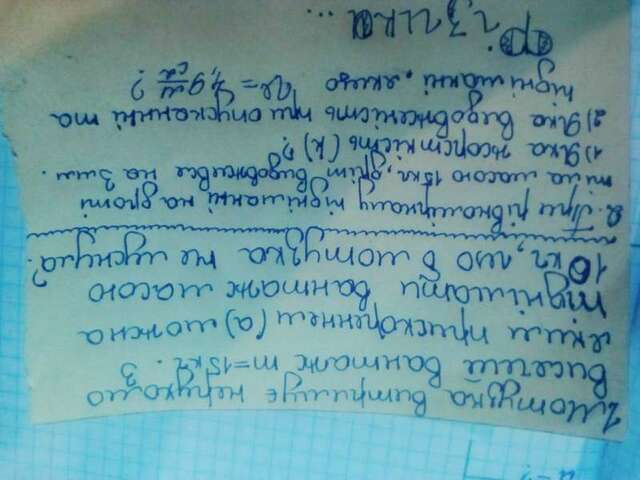 1. Мотузка витримує нерухомо
висячий вантаж m=15кг. З
яким прискоренням (а) можна
піднімати вантаж масою
10кг, що б мотузка не луснула?
2. При рівномірному підніманні на дроті
тіла масою 15кг, дріт видовжився на 3мм.
1) Яка жорсткість (k)?
2) Яка видовженість при опусканні та
підніманні, якщо a = 4,9 м/с²?
фізика ...